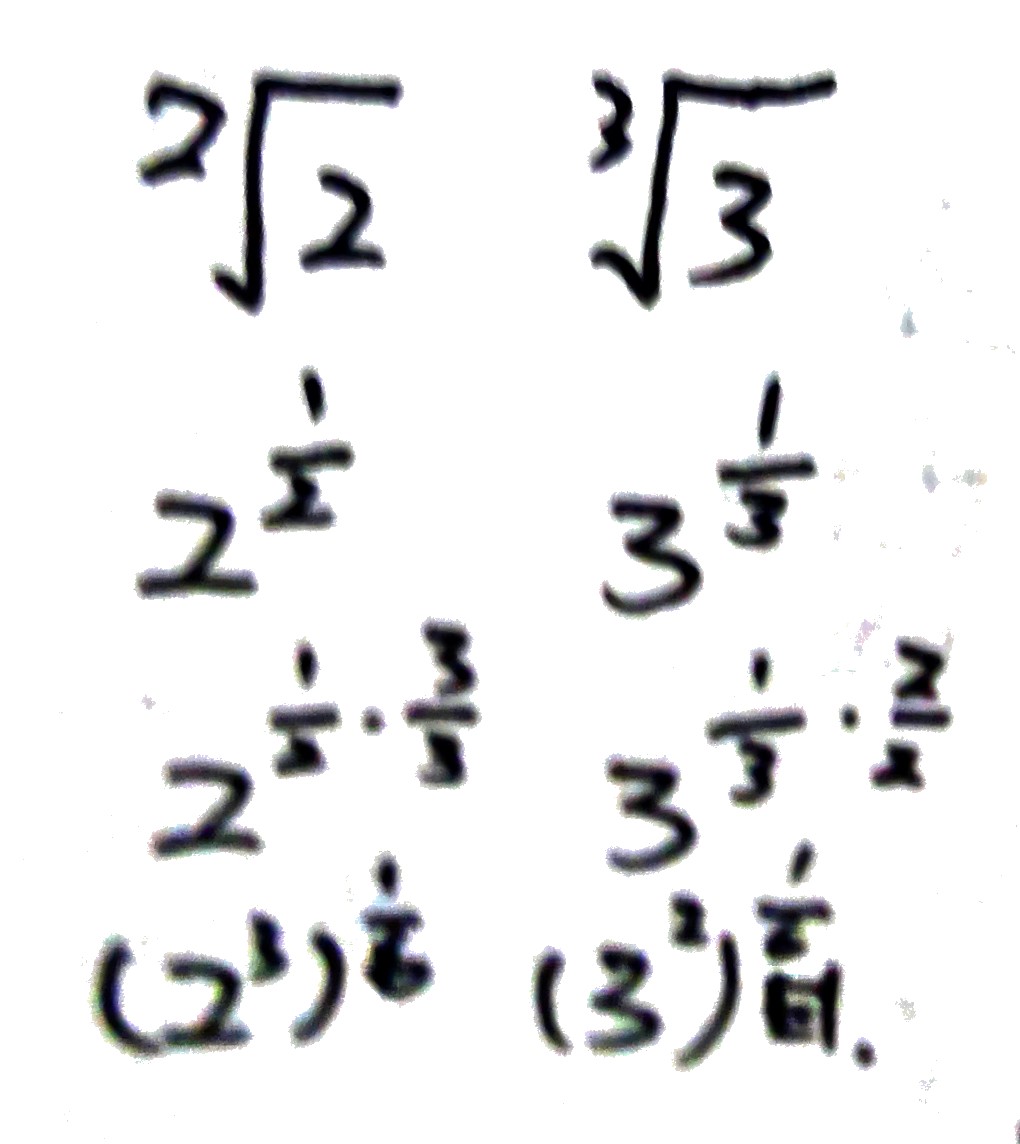 ²√2 ³√3
2^(1/2) 3^(1/3)
2^(1/2 · 3/3) 3^(1/3 · 2/2)
(2³)^(1/ (3²)^(1/